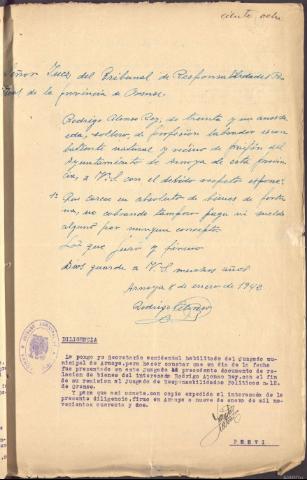 ciento ocho
Señor Juez del Tribunal de Responsabilidades Po-
de la provincia de Orense.
Rodrigo Alonso Rey, de treinta y un años de
edad, soltero, de profesión labrador
natural y vecino de
Ayuntamiento de Arnoya de esta provin-
cia, a V.S. con el debido respeto expone:
1º Que carece en absoluto de bienes de fortu-
na, no cobrando tampoco paga ni sueldo
alguno por ningun concepto.
Lo que juro y firmo
Dios guarde a V.S. muchos años
Arnoya 8 de enero de 1942
Rodrigo
DILIGENCIA
La pongo yo Secretario accidental habilitado del Juzgado mu-
nicipal de Arnoya, para hacer constar que en dia de la fecha
fue presentado en este Juzgado el precedente documento de re-
lacion de bienes del interesado Rodrigo Alonso Rey, con el fin
de su remision al Juzgado de Responsabilidades Politicas n. 12.
de Orense.
Y para que asi conste, con copia expedida el interesado de la
presente diligencia, firmo en Arnoya a nueve de enero de mil no-
vecientos cuarenta y dos.